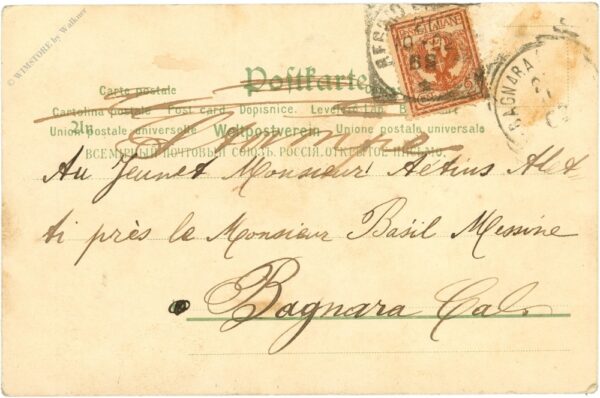 © WIMSTORE by Walkner
REGGIO
POSTE ITALIANE
BAGNARA
Carte postale Postkarte
Cartolina postale Post card Dopisnice.
An
Union postale universelle Weltpostverein Unione postale universale
ВСЕМІРНЫЙ ПОЧТОВЫЙ СОЮЗЪ. РОССІЯ. ОТКРЫТОЕ ПИСЬМО.
Au Jeunet Monsieur Aetius Alet
ti près le Monsieur Basil Messine
Bagnara Cal.